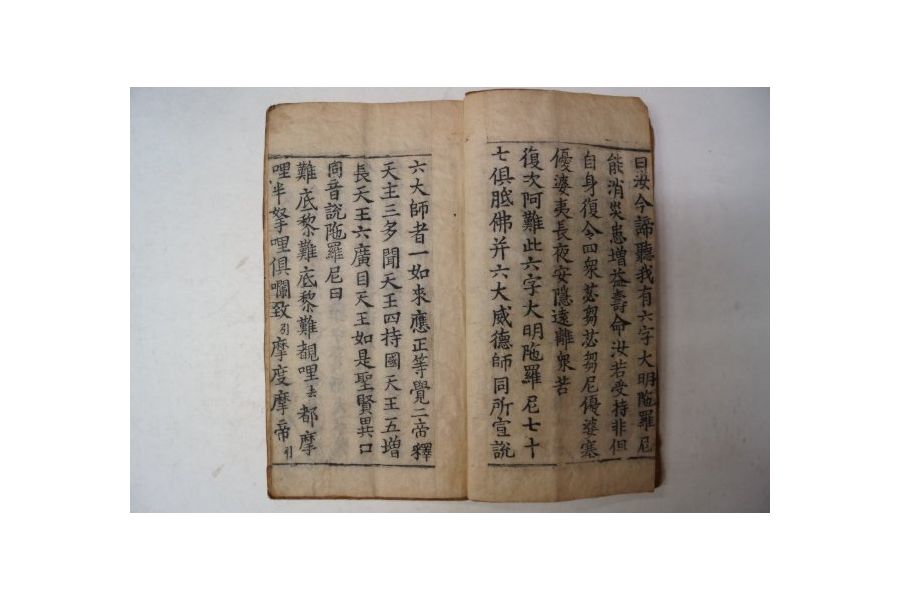 曰汝今諦聽我有六字大明陁羅尼
能消災患增益壽命汝若受持非但
自身復令四衆苾芻苾芻尼優婆塞
優婆夷長夜安隱遠離衆苦
復次阿難此六字大明陁羅尼七十
七俱胝佛并六大威德師同所宣說
六大師者一如來應正等覺二帝釋
天主三多聞天王四持國天王五增
長天王六廣目天王如是聖賢異口
同音說陁羅尼曰
難底黎難底黎難覩哩去都摩
哩半拏哩俱嚂致引摩度摩帝引